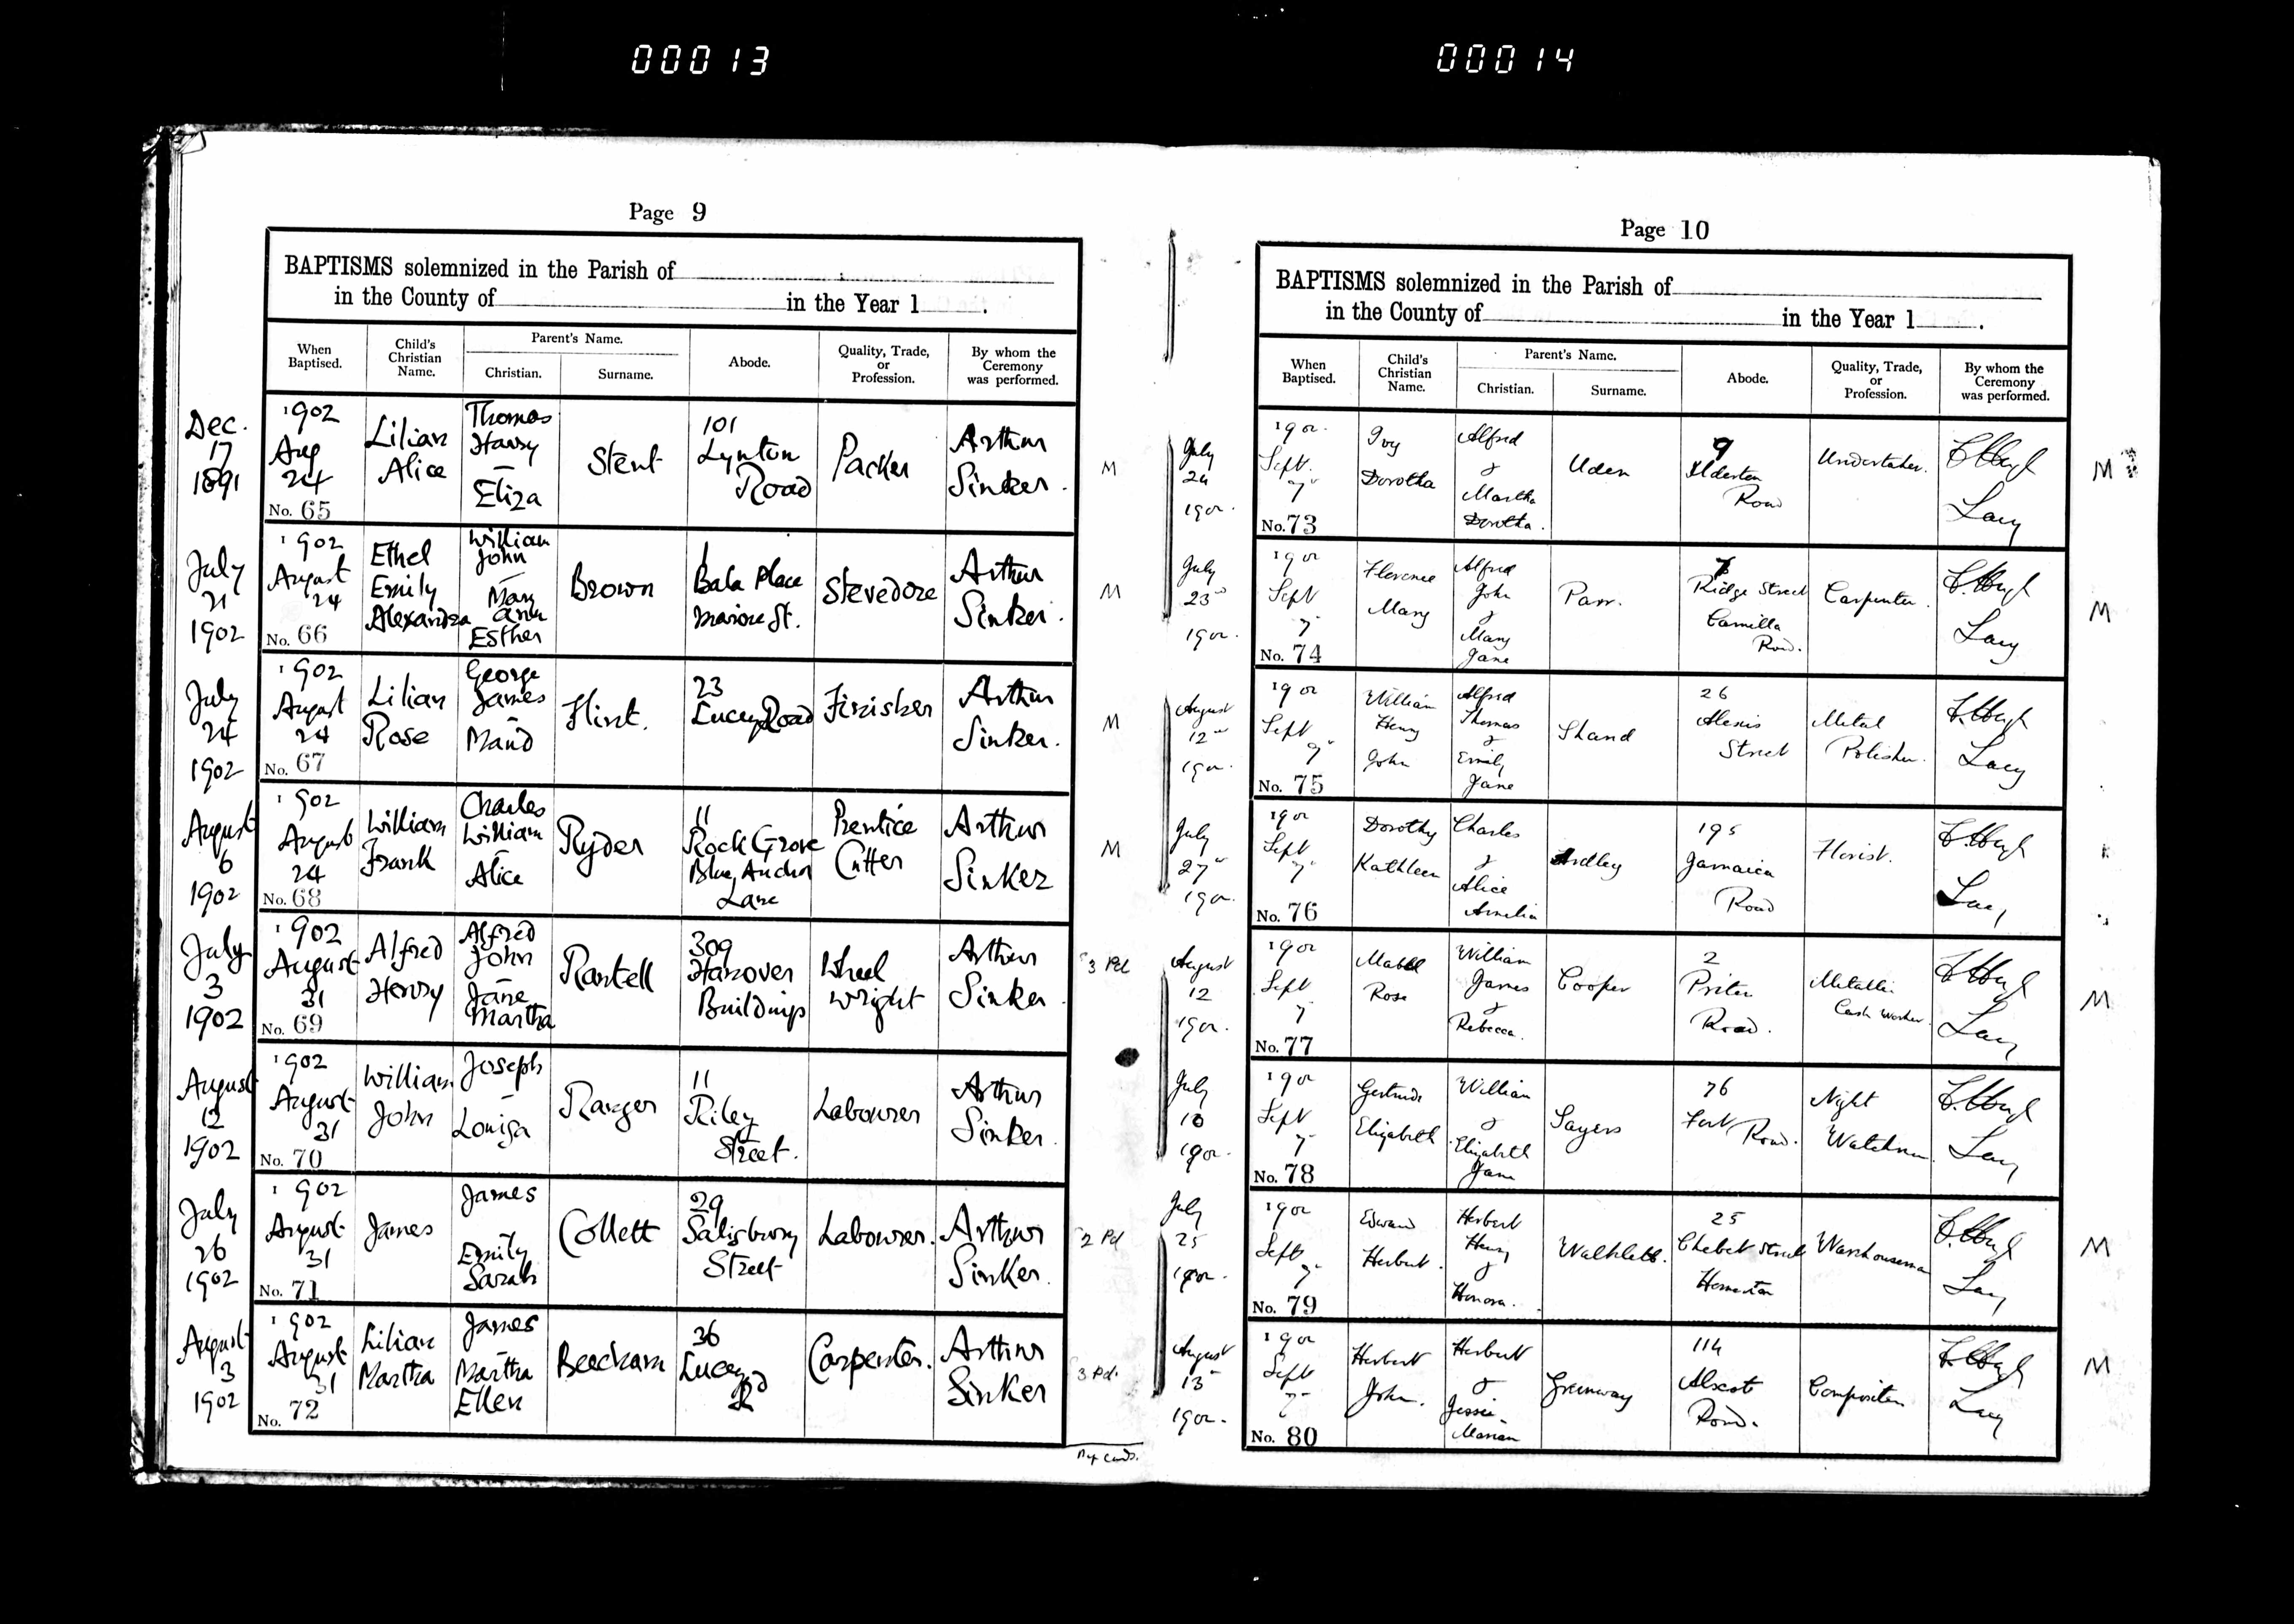 00013
00014
Page 9
BAPTISMS solemnized in the Parish of
in the County of in the Year 1 .
When Baptised.
Child's Christian Name.
Parent's Name.
Christian.
Surname.
Abode.
Quality, Trade, or Profession.
By whom the Ceremony was performed.
Dec. 17 1891
1902 Aug 24
No. 65
Lilian Alice
Thomas Harry – Eliza
Stent
101 Lynton Road
Packer
Arthur Sinker.
M
July 21 1902
1902 August 24
No. 66
Ethel Emily Alexandra
William John – Mary Ann Esther
Brown
1 Bala Place Marine St.
Stevedore
Arthur Sinker.
M
July 24 1902
1902 August 24
No. 67
Lilian Rose
George James – Maud
Flint.
23 Lucey Road
Finisher
Arthur Sinker.
M
August 6 1902
1902 August 24
No. 68
William Frank
Charles William – Alice
Ryder
11 Rock Grove Blue Anchor Lane
Prentice Cutter
Arthur Sinker
M
July 3 1902
1902 August 31
No. 69
Alfred Henry
Alfred John – Jane Martha
Rantell
309 Hanover Buildings
Wheel wright
Arthur Sinker.
3 Pd
August 12 1902
1902 August 31
No. 70
William John
Joseph – Louisa
Ranger
11 Riley Street.
Labourer
Arthur Sinker.
July 26 1902
1902 August 31
No. 71
James
James Emily Sarah
Collett
29 Salisbury Street
Labourer.
Arthur Sinker.
2 Pd
August 3 1902
1902 August 31
No. 72
Lilian Martha
James – Martha Ellen
Beecham
36 Lucey Rd
Carpenter.
Arthur Sinker
3 Pd.
Page 10
BAPTISMS solemnized in the Parish of
in the County of in the Year 1 .
When Baptised.
Child's Christian Name.
Parent's Name.
Christian.
Surname.
Abode.
Quality, Trade, or Profession.
By whom the Ceremony was performed.
July 24 1902.
1902. Sept. 7
No. 73
Ivy Dorotha
Alfred & Martha Dorotha.
Uden
9 Ilderton Road
Undertaker.
Lacy
M
July 23 1902.
1902 Sept 7
No. 74
Florence Mary
Alfred John & Mary Jane
Parr.
7 Ridge Street Camilla Road.
Carpenter.
Lacy
M
August 12 1902.
1902 Sept 7
No. 75
William Henry John
Alfred Thomas & Emily Jane
Shand
26 Alexis Street
Metal Polisher.
Lacy
July 27 1902.
1902 Sept 7
No. 76
Dorothy Kathleen
Charles & Alice Amelia
Ardley
195 Jamaica Road
Florist.
Lacy
August 12 1902.
1902 Sept 7
No. 77
Mabel Rose
William James & Rebecca.
Cooper
2 Road.
Worker.
Lacy
M
July 10 1902.
1902 Sept 7
No. 78
Gertrude Elizabeth
William & Elizabeth Jane
Sayers
76 Fort Road.
Night Watchman.
Lacy
July 25 1902.
1902 Sept 7
No. 79
Edward Herbert.
Herbert Henry & Honora.
25 Street Homerton
Warehouseman
Lacy
M
August 13 1902.
1902 Sept 7
No. 80
Herbert John.
Herbert & Jessie Marian
Greenway
114 Alscot Road.
Compositor
Lacy
M